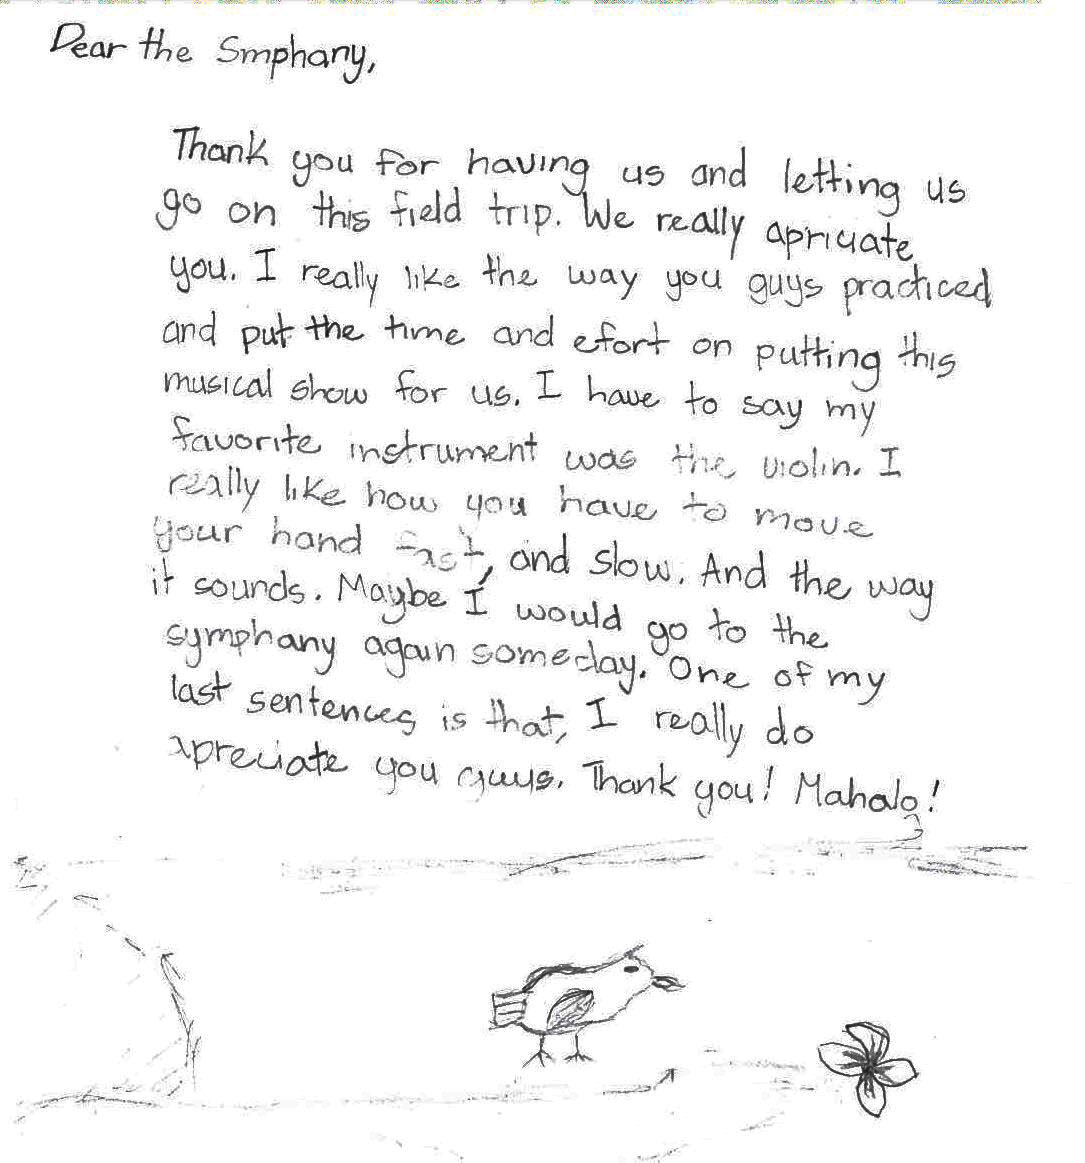 Dear the Smphany,
Thank you for having us and letting us
go on this field trip. We really apriciate
you. I really like the way you guys practiced
and put the time and efort on putting this
musical show for us. I have to say my
favorite instrument was the violin. I
really like how you have to move
your hand fast, and slow. And the way
it sounds. Maybe I would go to the
symphany again someday. One of my
last sentences is that, I really do
apreciate you guys. Thank you! Mahalo!